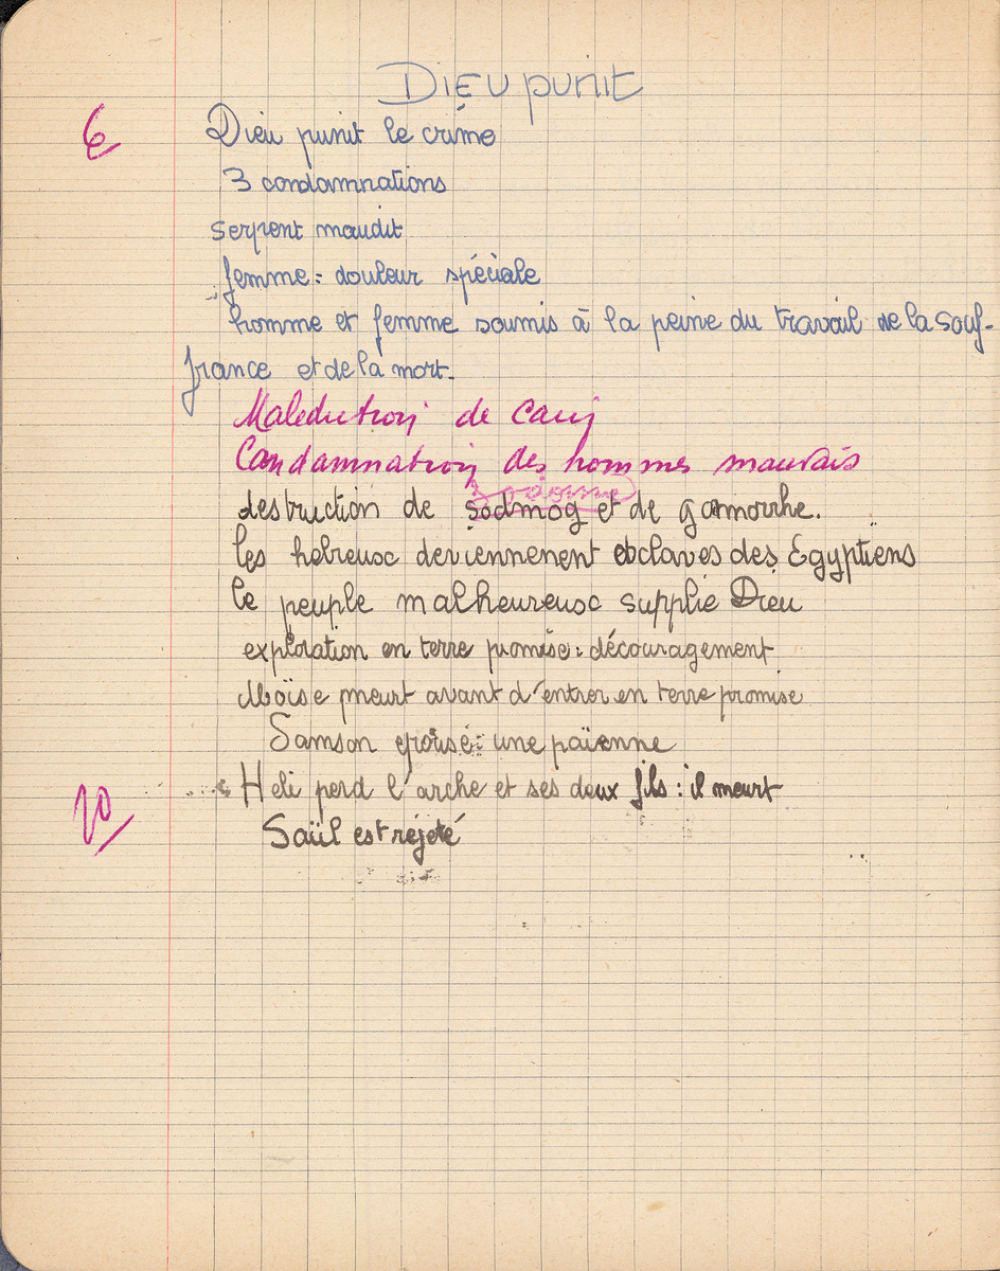 Dieu punit
6
Dieu punit le crime
3 condamnations
serpent maudit
femme : douleur spéciale
homme et femme soumis à la peine du travail de la souf-
france et de la mort.
Malediction de Cain
Condamnation des hommes mauvais
Sodome
destruction de sodmog et de gamorrhe.
les hebreux deviennenent esclaves des Égyptiens
le peuple malheureux supplie Dieu
exploration en terre promise : découragement
Moïse meurt avant d'entrer en terre promise
Samson épouse : une païenne
Heli perd l'arche et ses deux fils : il meurt
10
Saül est rejeté